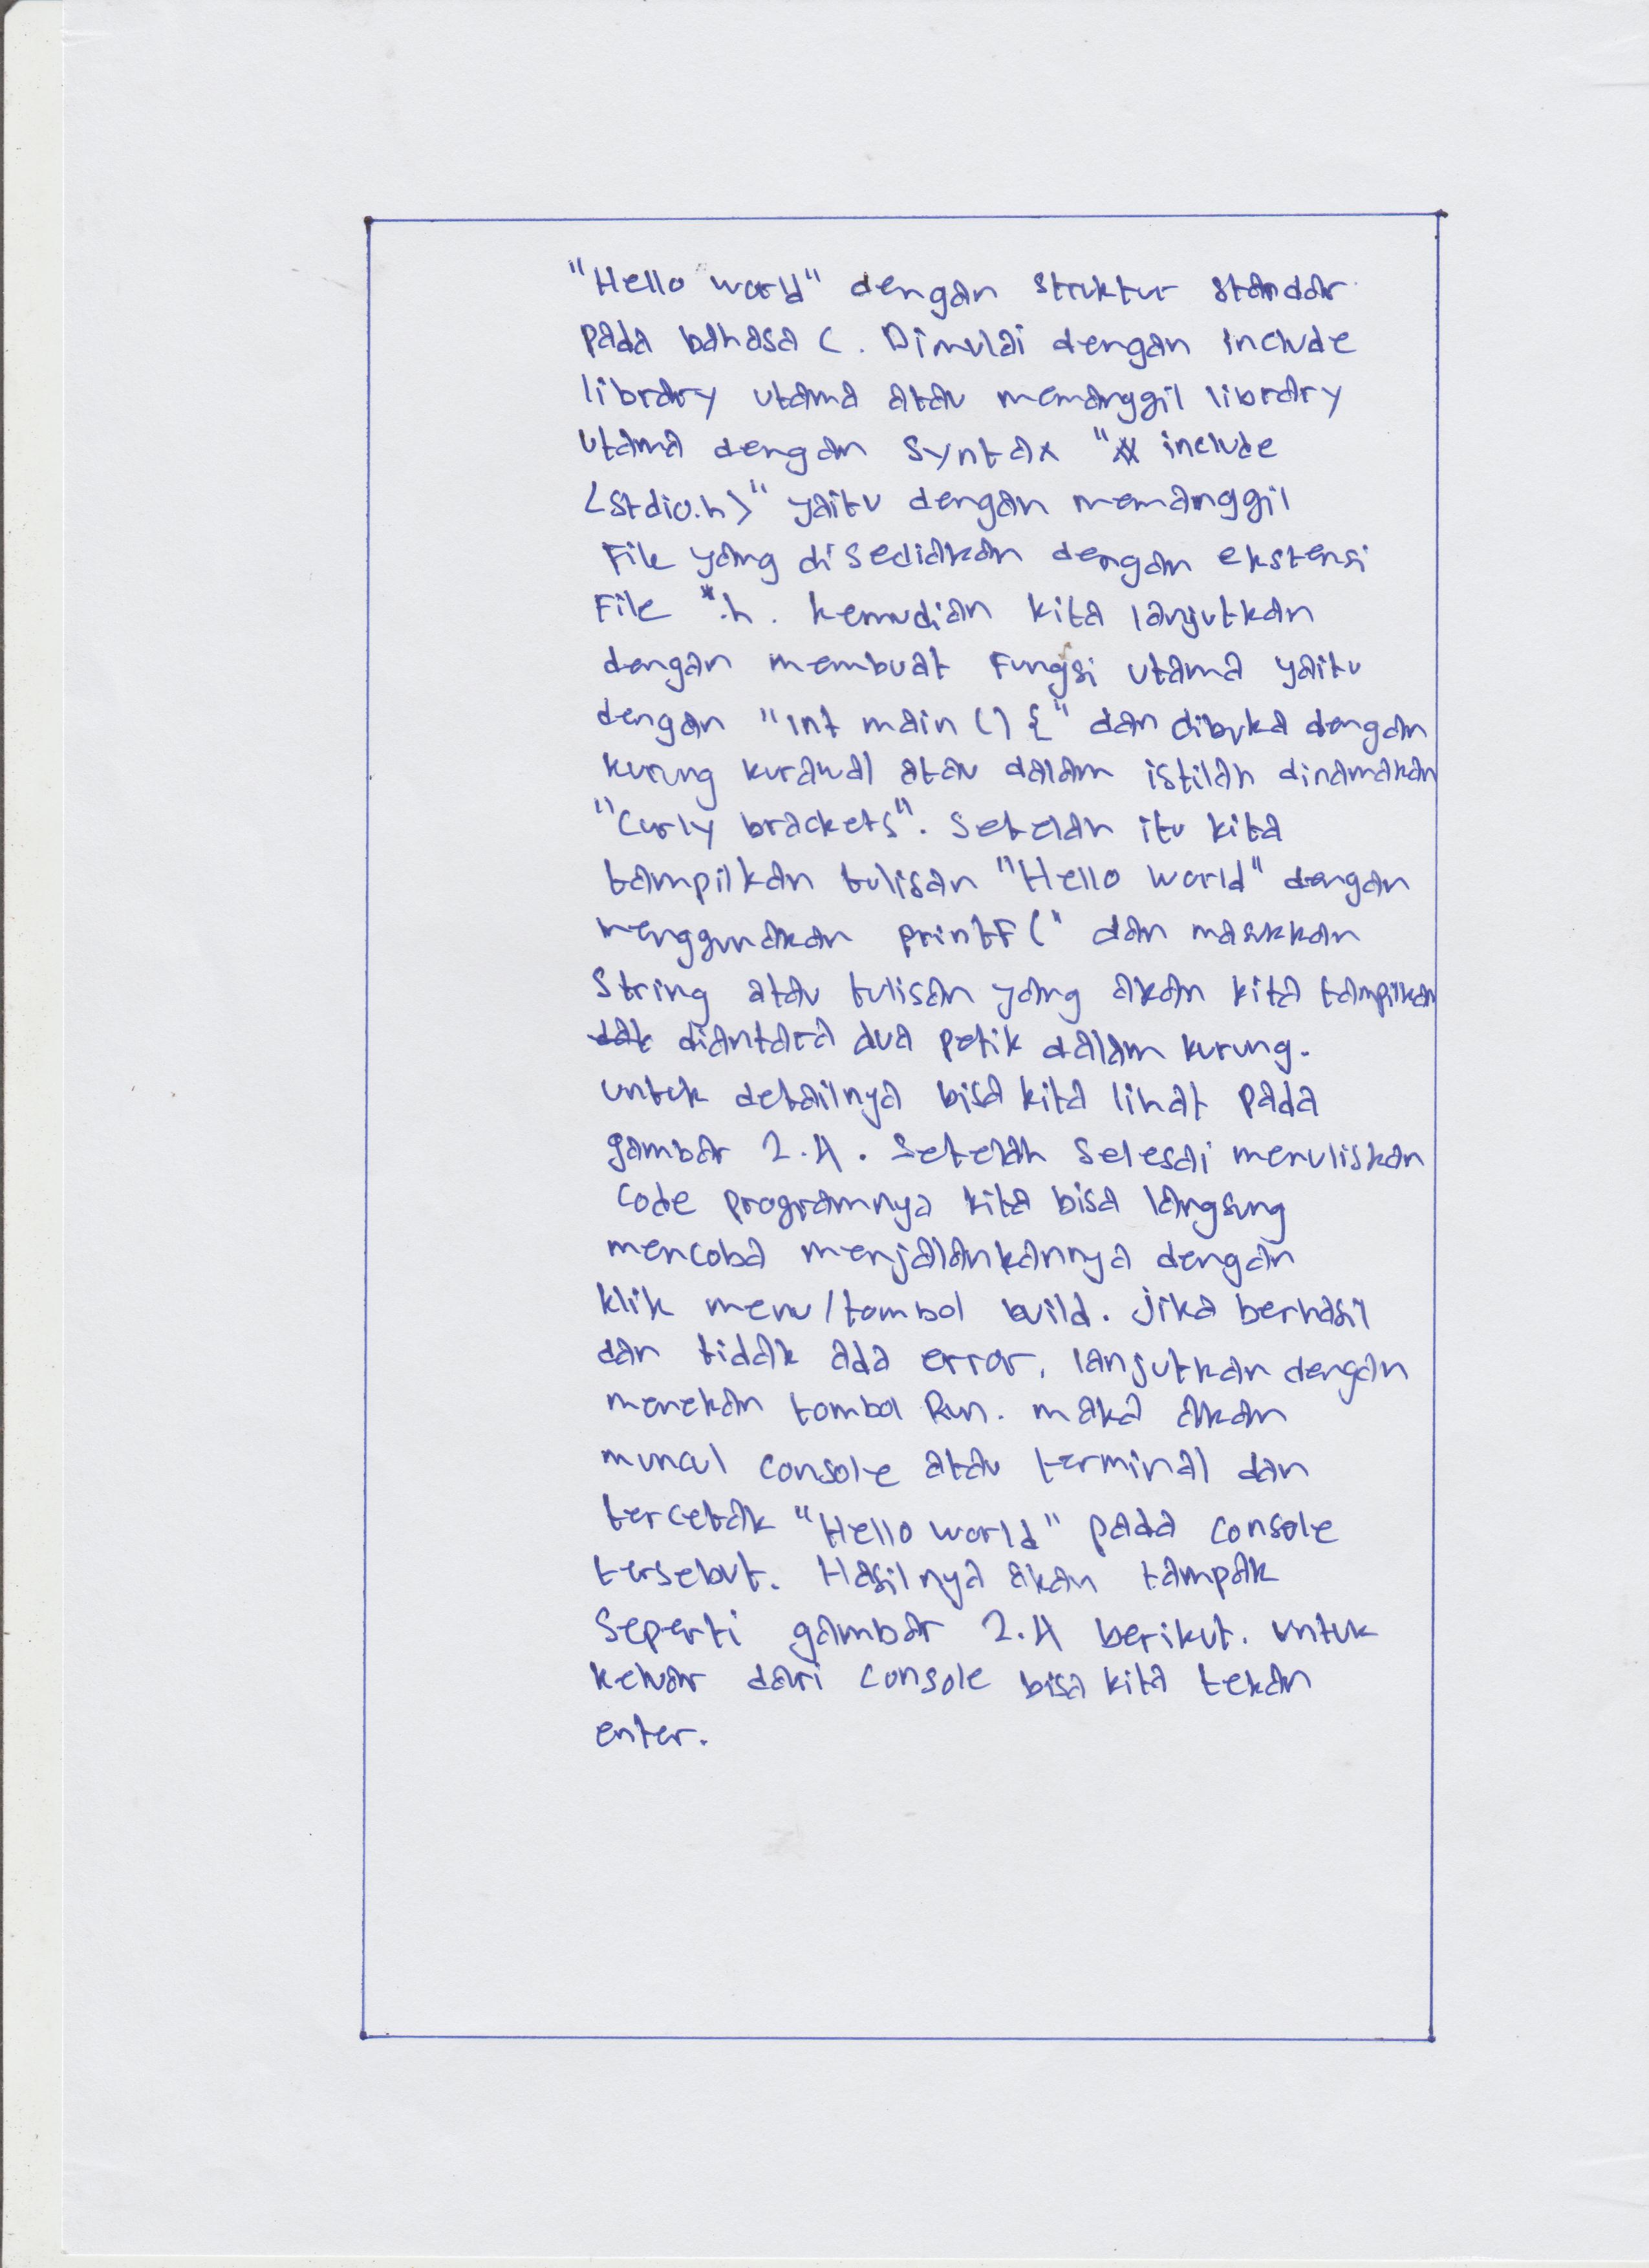 "Hello world" dengan struktur standar
pada bahasa C. Dimulai dengan include
library utama atau memanggil library
utama dengan syntax "# include
<stdio.h>" yaitu dengan memanggil
File yang disediakan dengan ekstensi
File *.h. kemudian kita lanjutkan
dengan membuat Fungsi utama yaitu
dengan "int main () {" dan dibuka dengan
kurung kurawal atau dalam istilah dinamakan
"Curly brackets". Setelah itu kita
tampilkan tulisan "Hello World" dengan
menggunakan printF (" dan masukkan
String atau tulisan yang akan kita tampilkan
dak diantara dua petik dalam kurung.
untuk detailnya bisa kita lihat pada
gambar 2.4. Setelah selesai menuliskan
code programnya kita bisa langsung
mencoba menjalankannya dengan
klik menu/tombol build. Jika berhasil
dan tidak ada error, lanjutkan dengan
menekan tombol Run. maka akan
muncul console atau terminal dan
tercetak "Hello world" pada console
tersebut. Hasilnya akan tampak
Seperti gambar 2.4 berikut. untuk
keluar dari console bisa kita tekan
enter.